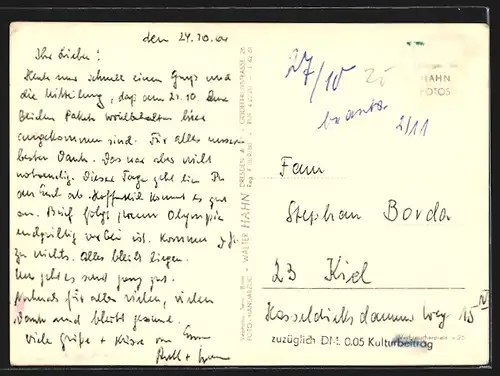 den 24.10.64
Ihr Lieben!
Heute nur schnell einen Gruß und
die Mitteilung, daß am 21.10. Eure
Beiden Pakete wohlbehalten hier
angekommen sind. Für alles unseren
besten Dank. Das war aber nicht
notwendig. Diese Tage geht ein
an Euch ab. Hoffentlich kommt es gut
an. Brief folgt wenn Olympia
endgültig vorbei ist. Komme z. Zt.
zu nichts. Alles bleibt liegen.
Uns geht es sonst ganz gut.
Nochmals für alles vielen, vielen
Dank und bleibt gesund.
Viele Grüße + Küsse von
WALTER HAHN DRESDEN A
27/10
HAHN
FOTOS
2/11
Fam
Stephan Borda
23 Kiel
Hasseldieksdammer Weg 15
zuzüglich DM. 0.05 Kulturbeitrag